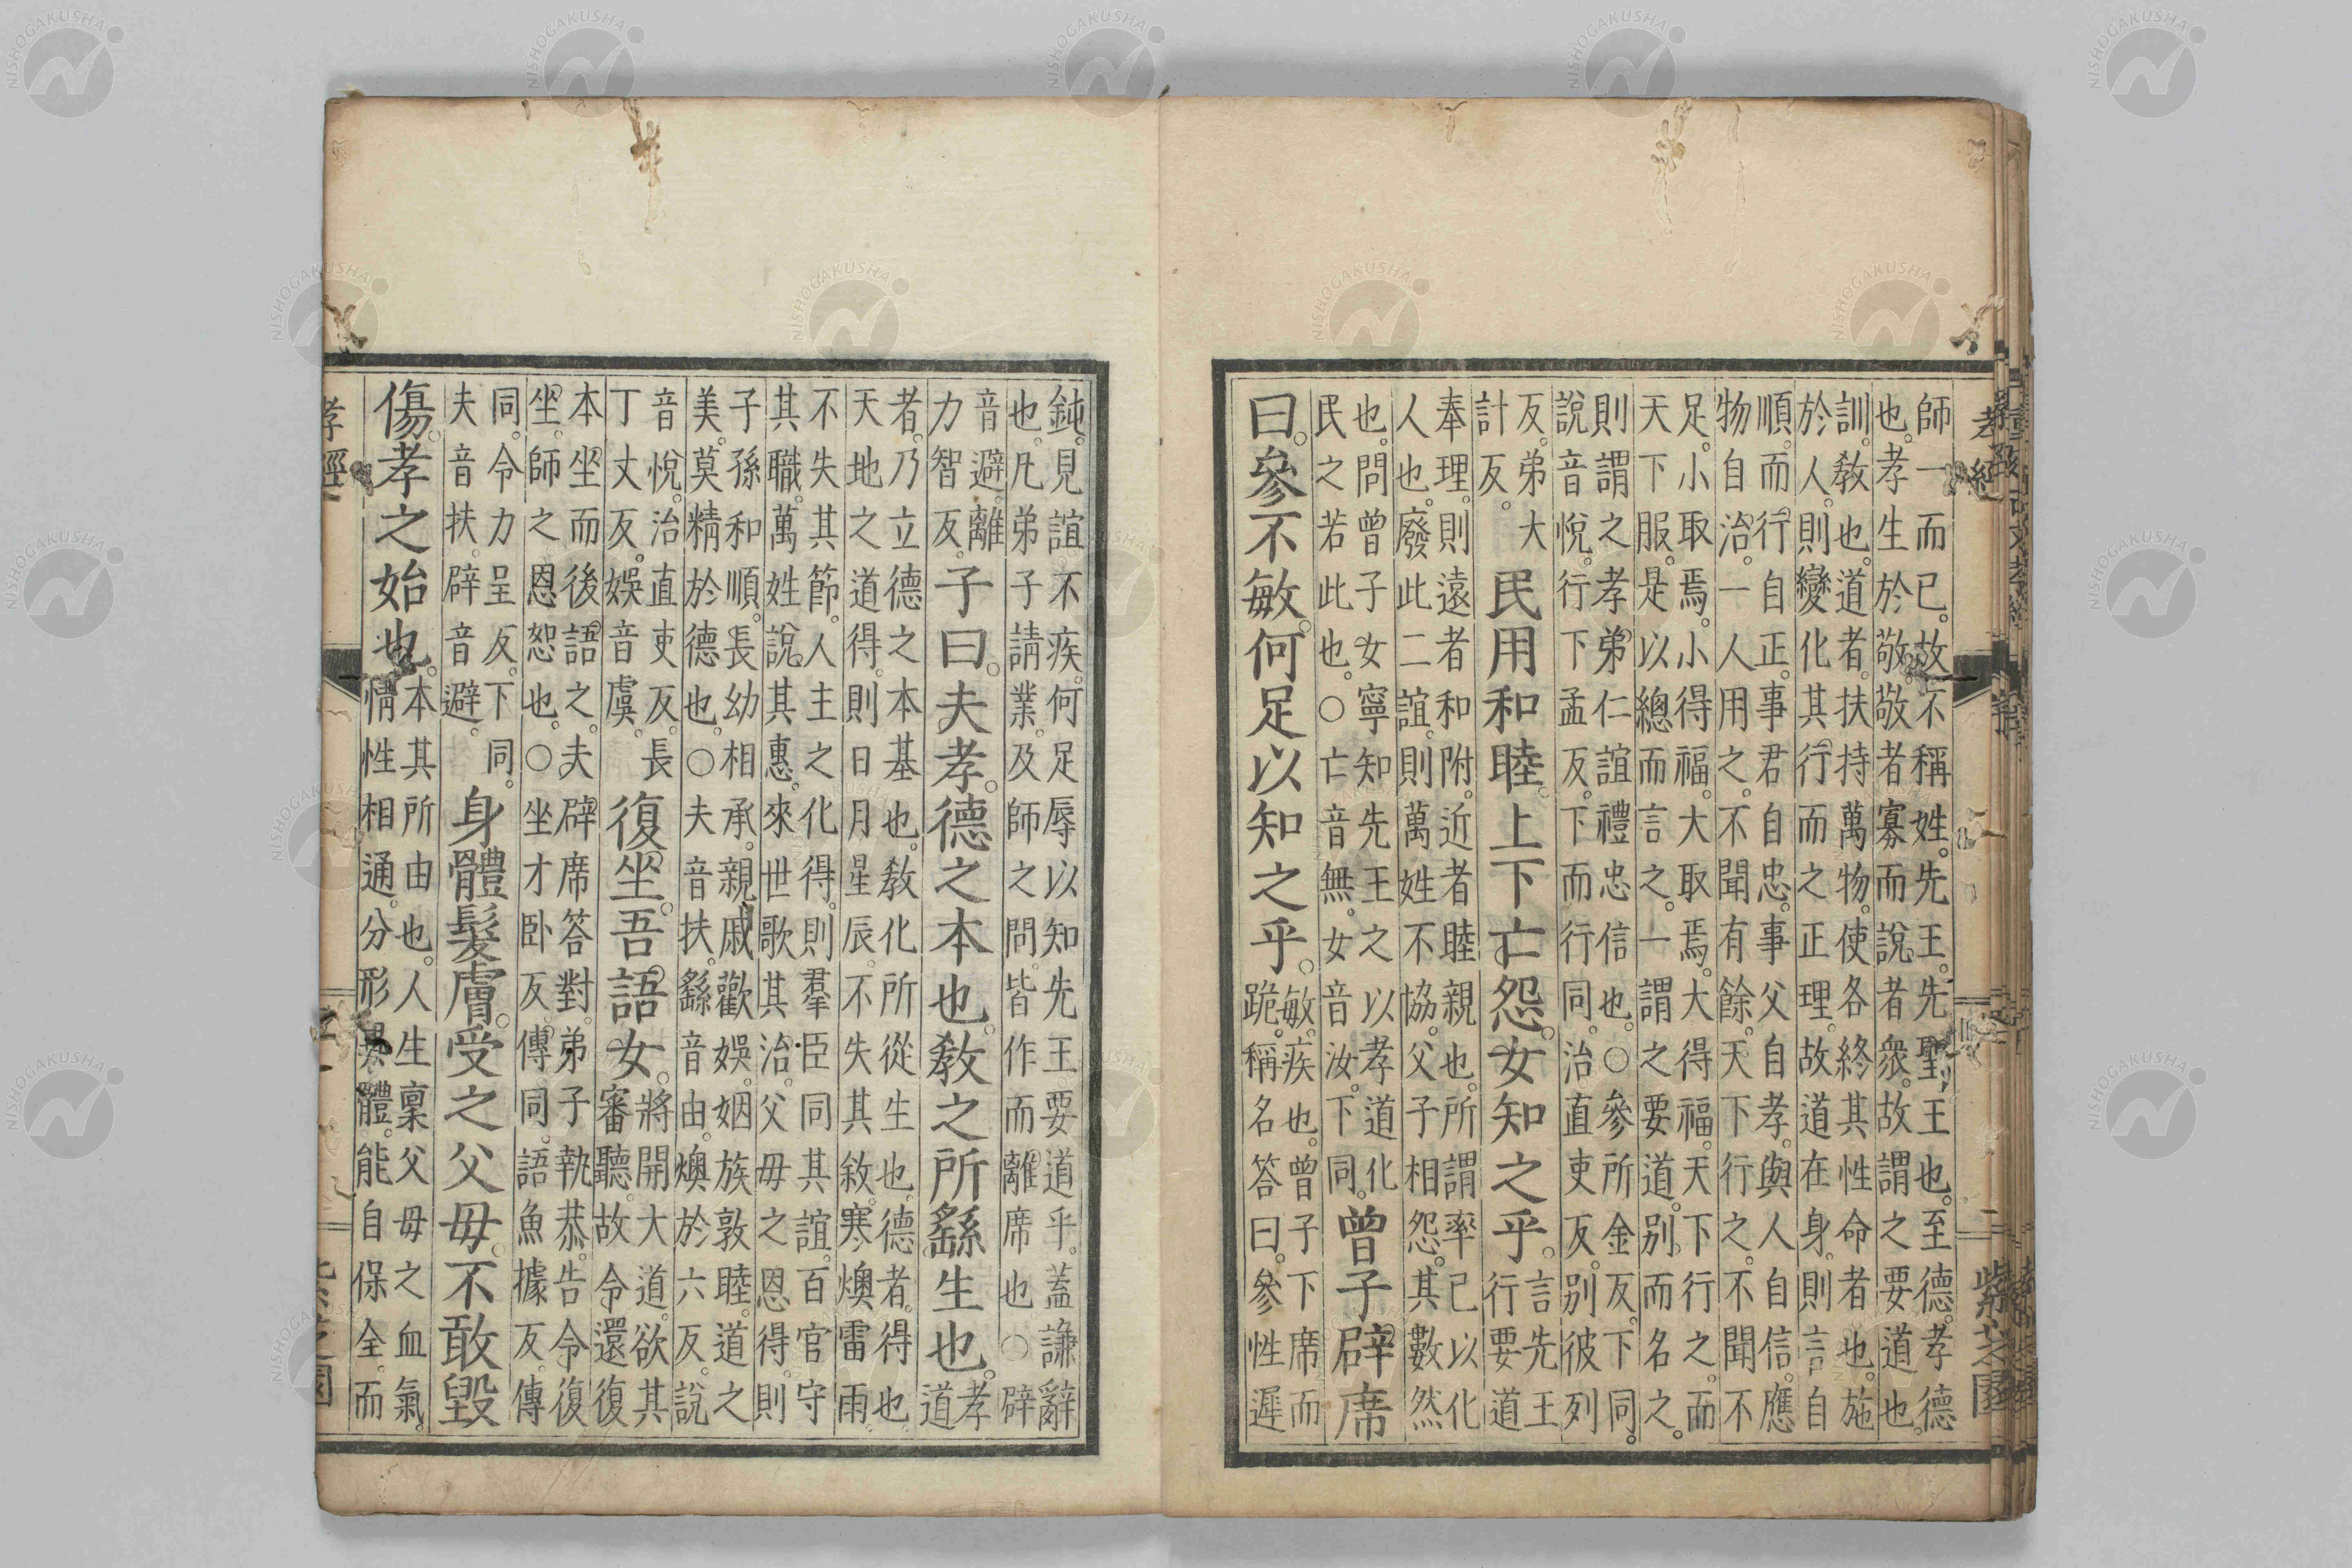 孝經 紫芝園
師一而已。故不稱姓。先王。先聖王也。至德孝德
也。孝生於敬。敬者寡而說者衆。故謂之要道也。
訓。教也。道者。扶持萬物。使各終其性命者也。施
於人。則變化其行而之正理。故道在身。則言自
順。而行自正。事君自忠。事父自孝。與人自信。應
物自治。一人用之。不聞有餘。天下行之。不聞不
足。小取焉。小得福。大取焉。大得福。天下行之。而
天下服。是以總而言之。一謂之要道。別而名之。
則謂之孝弟仁誼禮忠信也。○參所金反。下同。
說音悅。行下孟反。下而行同。治直吏反。別彼列
反。弟大
計反。
民用和睦。上下亡怨。女知之乎。
言先王
行要道
奉理。則遠者和附。近者睦親也。所謂率己以化
人也。廢此二誼。則萬姓不協。父子相怨。其數然
也。問曾子女寧知先王之以孝道化
民之若此也。○亡音無。女音汝。下同。
曾子辟席
曰。參不敏。何足以知之乎。
敏。疾也。曾子下席而
跪。稱名答曰。參性遲
鈍。見誼不疾。何足辱以知先王要道乎。蓋謙辭
也。凡弟子請業。及師之問。皆作而離席也○辟
音避。離
力智反。
子曰。夫孝。德之本也。教之所繇生也。
孝
道
者。乃立德之本基也。教化所從生也。德者。得也。
天地之道得。則日月星辰。不失其敘。寒燠雷雨
不失其節。人主之化得。則羣臣同其誼。百官守
其職。萬姓說其惠。來世歌其治。父母之恩得。則
子孫和順。長幼相承。親戚歡娛。姻族敦睦。道之
美。莫精於德也。○夫音扶。繇音由。燠於六反。說
音悅。治直吏反。長
丁丈反。娛音虞。
復坐。吾語女。
將開大道。欲其
審聽。故令還復
本坐而後語之。夫辟席答對。弟子執恭。告令復
坐。師之恩恕也。○坐才臥反。傳同。語魚據反。傳
同。令力呈反。下同。
夫音扶。辟音避。
身體髮膚。受之父母。不敢毀
傷。孝之始也。
本其所由也。人生稟父母之血氣。
情性相通。分形異體。能自保全。而
孝經